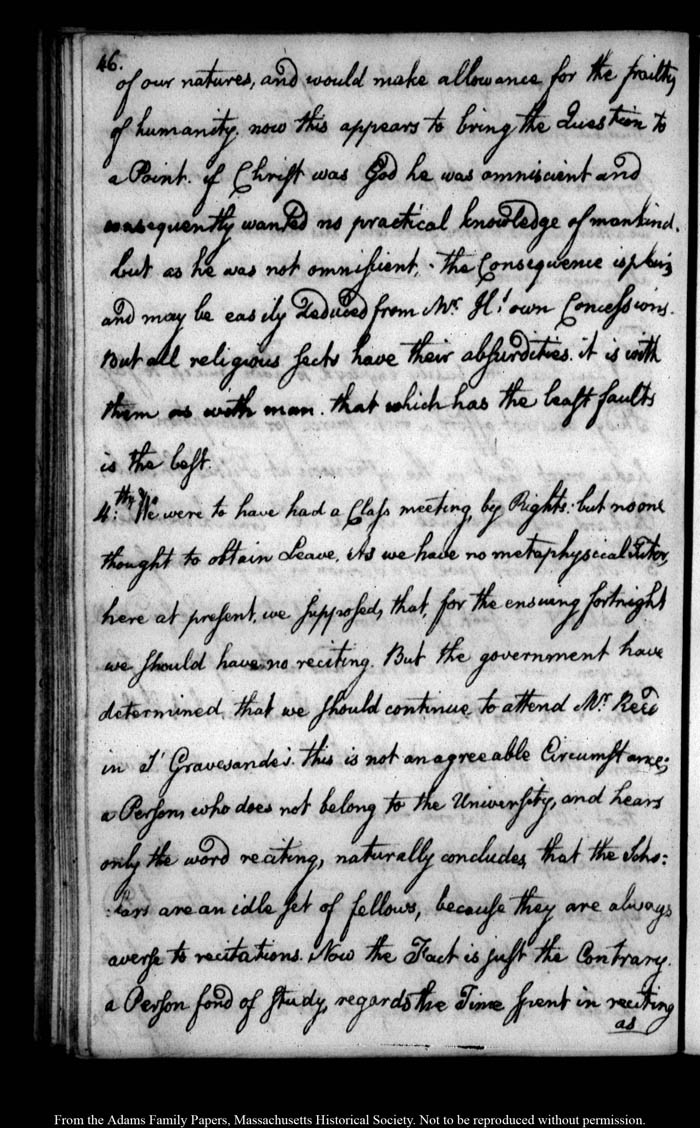 46.
of our natures, and would make allowance for the frailty
of humanity. now this appears to bring the Question to
a Point. if Christ was God he was omniscient and
consequently wanted no practical knowledge of mankind.
but as he was not omniscient, the Consequence is plain
and may be easily deduced from Mr. H's. own Concessions.
But all religious sects have their absurdities. it is with
them as with man. that which has the least faults
is the best.
4.th We were to have had a Class meeting, by Rights: but no one
thought to obtain Leave. As we have no metaphysical Tutor,
here at present, we supposed, that, for the ensuing fortnight
we should have no reciting. But the government have
determined, that we should continue to attend Mr. Read
in 's Gravesande's. this is not an agreeable Circumstance;
a Person, who does not belong to the University, and hears
only the word reciting, naturally concludes, that the Scho:
:lars are an idle set of fellows, because they are always
averse to recitations. Now the Fact is just the Contrary.
a Person fond of study, regards the Time spent in reciting
as
From the Adams Family Papers, Massachusetts Historical Society. Not to be reproduced without permission.